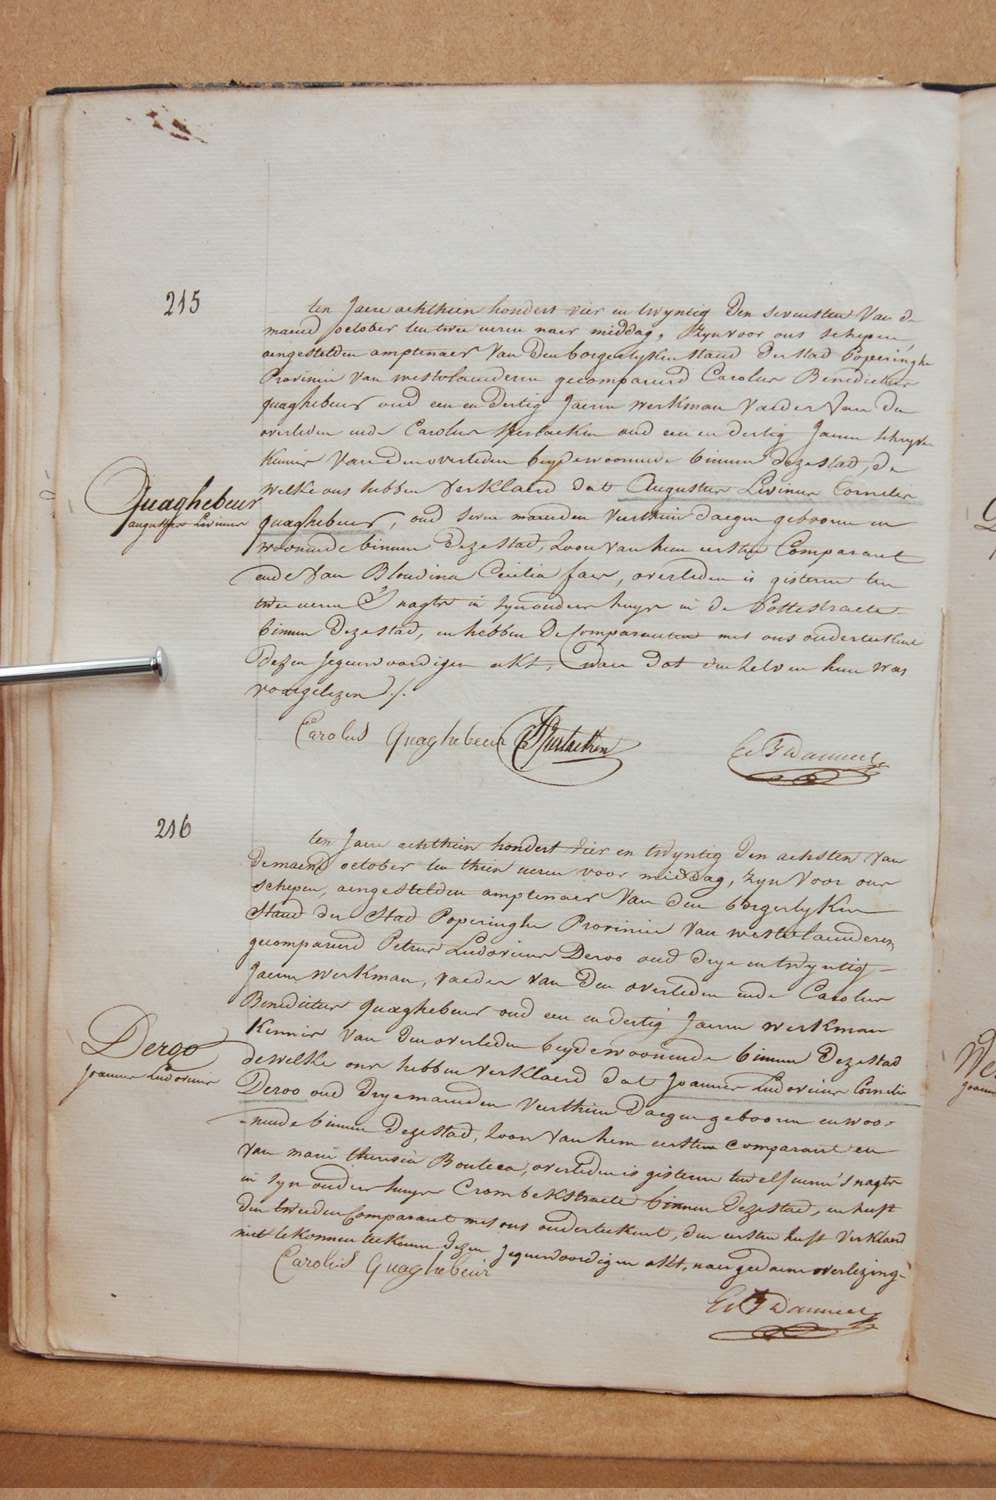 215
ten Jaere achthien hondert vier en twyntig den sevensten van de
maend october ten twee uren naer middag, zyn voor ons schepen,
aengestelden amptenaer van den borgerlyken stand der stad Poperinghe
Provincie van westvlaenderen gecompareerd Carolus Benedictus
quaghebeur oud een en dertig Jaeren werkman vader van den
overleden ende Carolus Hertaeken oud een en dertig Jaeren schryver
kennis van den overleden beyde woonende binnen deze stad, de
welke ons hebben verklaerd dat Augustus Livinus Cornelis
Quaghebeur
augustus Livinus
quaghebeur, oud seven maenden veerthien daegen gebooren en
woonende binnen deze stad, Zoon van hem eersten Comparant
ende van Blondina Cecilia faes, overleden is gisteren ten
twee uren 's nagts in syn ouders huys in de Pottestraete
binnen deze stad, en hebben de Comparanten met ons onderteekent
dezen jegenwoordigen akt, Naer dat den zelven hun was
voorgelezen ./.
Carolus Quaghebeur C Hertaeken
216
ten Jaere achthien hondert vier en twyntig den achsten van
de maend october ten thien uren voor middag, zyn voor ons
schepen, aengestelden amptenaer van den borgerlyken
Stand der Stad Poperinghe Provincie van westvlaenderen,
gecompareerd Petrus Ludovicus Deroo oud drye en twyntig
Jaeren werkman, vaeder van den overleden ende Carolus
Benedictus quaghebeur oud een en dertig Jaeren werkman
Kennis van den overleden beyde woonende binnen deze stad
Dergo
Joannes Ludovicus
de welke ons hebben verklaerd dat Joannes Ludovicus Cornelis
Deroo oud drye maenden veerthien daegen gebooren en woo-
-nende binnen deze stad, Zoon van hem eersten comparant en
van marie theresia Bouteca, overleden is gisteren ten elf uren 's nagts
in syn ouders huys Crombekstraete binnen deze stad, en heeft
den tweeden Comparant met ons onderteekent, den eersten heeft verklaerd
niet te konnen teekenen dezen jegenwoordigen akt, naer gedaene overlezing-
Carolus Quaghebeur